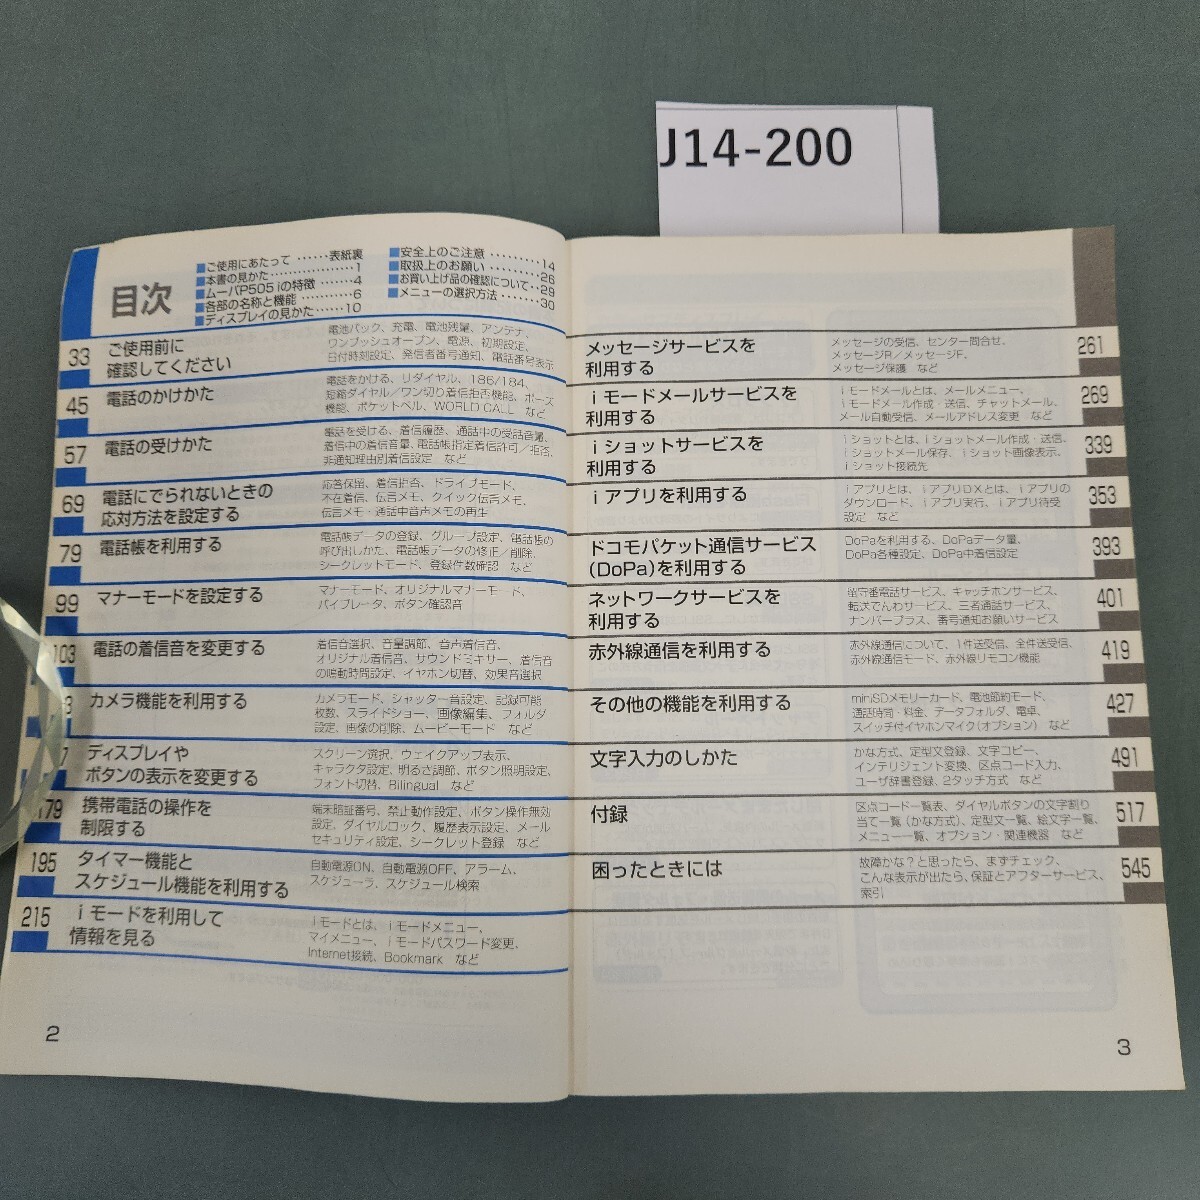 J14-200
目次
■ご使用にあたって ‥‥‥表紙裏
■本書の見かた‥‥‥‥‥‥‥1
■ムーバP505 iの特徴 ‥‥‥4
■各部の名称と機能 ‥‥‥‥6
■ディスプレイの見かた‥‥‥10
■安全上のご注意 ‥‥‥‥14
■取扱上のお願い ‥‥‥‥26
■お買い上げ品の確認について‥29
■メニューの選択方法 ‥‥‥30
33
ご使用前に
確認してください
電池パック、充電、電池残量、アンテナ、
ワンプッシュオープン、電源、初期設定、
日付時刻設定、発信者番号通知、電話番号表示
45
電話のかけかた
電話をかける、リダイヤル、186/184、
短縮ダイヤル/ワン切り着信拒否機能、ポーズ
機能、ポケットベル、WORLD CALL など
57
電話の受けかた
電話を受ける、着信履歴、通話中の受話音量、
着信中の着信音量、電話帳指定着信許可/拒否、
非通知理由別着信設定 など
69
電話にでられないときの
応対方法を設定する
応答保留、着信拒否、ドライブモード、
不在着信、伝言メモ、クイック伝言メモ、
伝言メモ・通話中音声メモの再生
79
電話帳を利用する
電話帳データの登録、グループ設定、電話帳の
呼び出しかた、電話帳データの修正/削除、
シークレットモード、登録件数確認 など
99
マナーモードを設定する
マナーモード、オリジナルマナーモード、
バイブレータ、ボタン確認音
103
電話の着信音を変更する
着信音選択、音量調節、音声着信音、
オリジナル着信音、サウンドミキサー、着信音
の鳴動時間設定、イヤホン切替、効果音選択
3
カメラ機能を利用する
カメラモード、シャッター音設定、記録可能
枚数、スライドショー、画像編集、フォルダ
設定、画像の削除、ムービーモード など
7
ディスプレイや
ボタンの表示を変更する
スクリーン選択、ウェイクアップ表示、
キャラクタ設定、明るさ調節、ボタン照明設定、
フォント切替、Bilingual など
179
携帯電話の操作を
制限する
端末暗証番号、禁止動作設定、ボタン操作無効
設定、ダイヤルロック、履歴表示設定、メール
セキュリティ設定、シークレット登録 など
195
タイマー機能と
スケジュール機能を利用する
自動電源ON、自動電源OFF、アラーム、
スケジューラ、スケジュール検索
215
i モードを利用して
情報を見る
i モードとは、i モードメニュー、
マイメニュー、i モードパスワード変更、
Internet接続、Bookmark など
2
メッセージサービスを
利用する
メッセージの受信、センター問合せ、
メッセージR/メッセージF、
メッセージ保護 など
261
i モードメールサービスを
利用する
i モードメールとは、メールメニュー、
i モードメール作成・送信、チャットメール、
メール自動受信、メールアドレス変更 など
269
i ショットサービスを
利用する
i ショットとは、i ショットメール作成・送信、
i ショットメール保存、i ショット画像表示、
i ショット接続先
339
i アプリを利用する
i アプリとは、i アプリDXとは、i アプリの
ダウンロード、i アプリ実行、i アプリ待受
設定 など
353
ドコモパケット通信サービス
(DoPa)を利用する
DoPaを利用する、DoPaデータ量、
DoPa各種設定、DoPa中着信設定
393
ネットワークサービスを
利用する
留守番電話サービス、キャッチホンサービス、
転送でんわサービス、三者通話サービス、
ナンバープラス、番号通知お願いサービス
401
赤外線通信を利用する
赤外線通信について、1件送受信、全件送受信、
赤外線通信モード、赤外線リモコン機能
419
その他の機能を利用する
miniSDメモリーカード、電池節約モード、
通話時間・料金、データフォルダ、電卓、
スイッチ付イヤホンマイク(オプション) など
427
文字入力のしかた
かな方式、定型文登録、文字コピー、
インテリジェント変換、区点コード入力、
ユーザ辞書登録、2タッチ方式 など
491
付録
区点コード一覧表、ダイヤルボタンの文字割り
当て一覧(かな方式)、定型文一覧、絵文字一覧、
メニュー一覧、オプション・関連機器 など
517
困ったときには
故障かな?と思ったら、まずチェック、
こんな表示が出たら、保証とアフターサービス、
索引
545
3